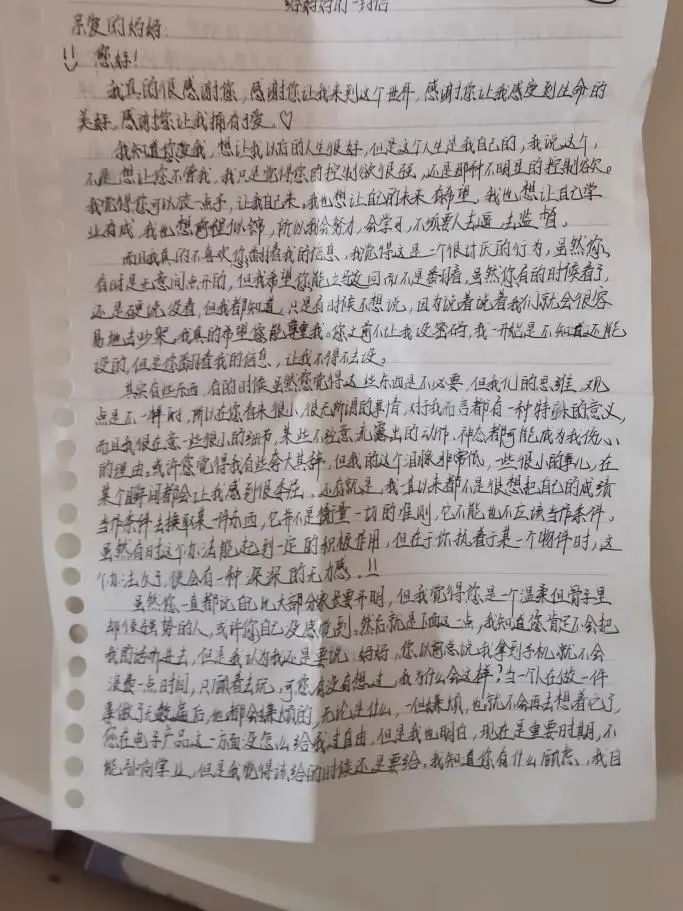 给妈妈的一封信
亲爱的妈妈:
您好!
我真的很感谢您,感谢您让我来到这个世界,感谢您让我感受到生命的
美好,感谢您让我拥有了爱。♡
我知道你爱我,想让我以后的人生很好,但是这个人生是我自己的,我说这个,
不是想让您不管我,我只是觉得您的控制欲很强,还是那种不明显的控制欲。
我觉得您可以放一点手,让我自己来。我也想让自己的未来有希望,我也想让自己学
业有成,我也想前程似锦,所以我会努力,会学习,不须要人去逼去监督。
而且我真的不喜欢你翻看我的信息,我觉得这是一个很讨厌的行为,虽然你
有时是无意间点开的,但我希望你能立马返回而不是翻看,虽然你有的时候看了,
还是硬说没看,但我都知道,只是有时候不想说,因为说着说着我们就会很容
易地去吵架。我真的希望您能尊重我。您之前不让我设密码,我一开始是不知道还能
设的,但是你翻看我的信息,让我不得不去设。
其实有些东西,有的时候虽然您觉得这些东西是不必要,但我们的思维、观
点是不一样的,所以在您看来很小,很无所谓的事情,对于我而言都有一种特殊的意义,
而且我很在意一些很小的细节,某些不经意流露出的动作,神态都可能成为我伤心
的理由。或许您觉得我有些夸大其辞,但我的这个泪腺非常低,一些很小的事儿,在
某个瞬间都会让我感到很委屈。还有就是,我一直以来都不是很想把自己的成绩
当作条件去换取某一件东西,它并不是衡量一切的准则,它不能也不应该当作条件。
虽然有时这个办法能起到一定的积极作用,但在于你执着于某一个物件时,这
个办法久了,便会有一种深深的无力感。!!
虽然您一直都说自己比大部分家长要开明,但我觉得您是一个温柔但骨子里
却很强势的人,或许你自己没感觉到。然后就是下面这一点,我知道您肯定不会把
我的话听进去,但是我认为我还是要说:妈妈,您以前总说我拿到手机就不会
浪费一点时间,只顾着去玩,可您有没有想过,我为什么会这样?当一个人在做一件
事做了无数遍后,他都会嫌烦的,无论是什么,一但嫌烦,也就不会再去想着它了,
您在电子产品这一方面没怎么给我过自由,但是我也明白,现在是重要时期,不
能影响学业,但是我觉得该给的时候还是要给。我知道你有什么顾虑,我自